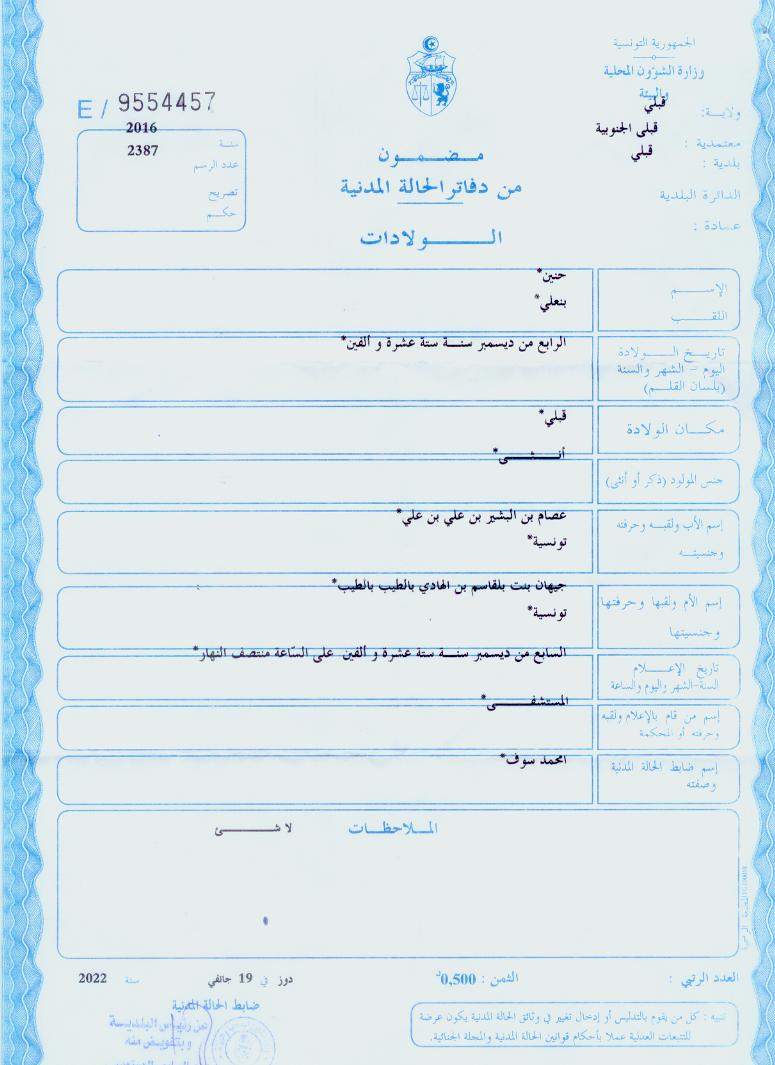 الجمهورية التونسية
وزارة الشؤون المحلية
والبيئة
ولايــة: قبلي
معتمدية : قبلى الجنوبية
بلدية : قبلي
الدائرة البلدية
عمادة :
E / 9554457
سنة 2016
عدد الرسم 2387
تصريح
حكــم
مـضـمـــون
من دفاتر الحالة المدنية
الـــــولادات
الإســــم حنين*
اللقـــب بنعلي*
تاريــخ الـــولادة
اليوم – الشهر والسنة
(بلسان القلــم)
الرابع من ديسمبر سنــة ستة عشرة و ألفين*
مكـــان الولادة قبلي*
جنس المولود (ذكر أو أنثى) أنــــثــــى*
إسم الأب ولقبــه وحرفته
وجنسيتــه
عصام بن البشير بن علي بن علي*
تونسية*
إسم الأم ولقبها وحرفتها
وجنسيتها
جيهان بنت بلقاسم بن الهادي بالطيب بالطيب*
تونسية*
تاريخ الإعـــلام
السنة-الشهر واليوم والساعة
السابع من ديسمبر سنــة ستة عشرة و ألفين على السّاعة منتصف النهار*
إسم من قام بالإعلام ولقبه
وحرفته أو المحكمة
المستشفــــى*
إسم ضابط الحالة المدنية
وصفته
امحمد سوف*
الملاحظــات
لا شــــئ
العدد الرتبي :
الثمن : 0,500د
دوز في 19 جانفي سنة 2022
ضابط الحالة المدنية
عن رئيس البلديــة
وبتفويض منه
تنبيه : كل من يقوم بالتدليس أو إدخال تغيير في وثائق الحالة المدنية يكون عرضة
للتتبعات العدلية عملا بأحكام قوانين الحالة المدنية والمجلة الجنائية.